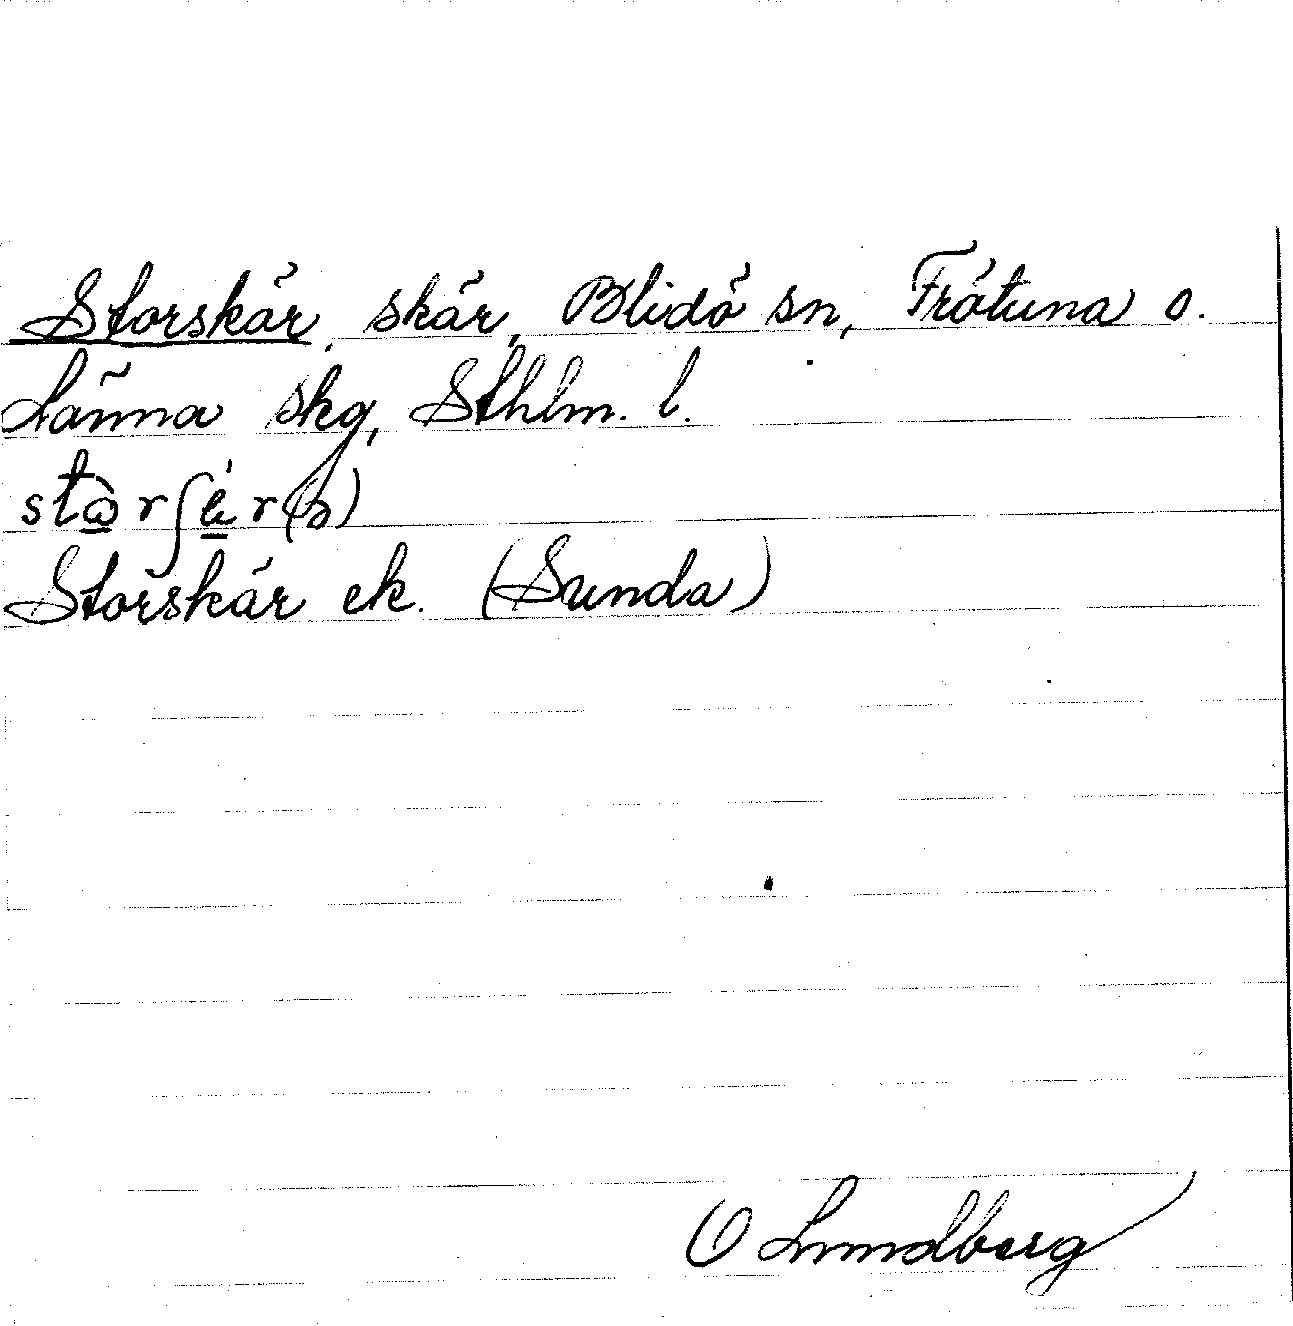 Storskär, skär, Blidö sn, Frötuna o.
Länna skg, Sthlm. l.
Storskär ek. (Sunda)
O Lundberg